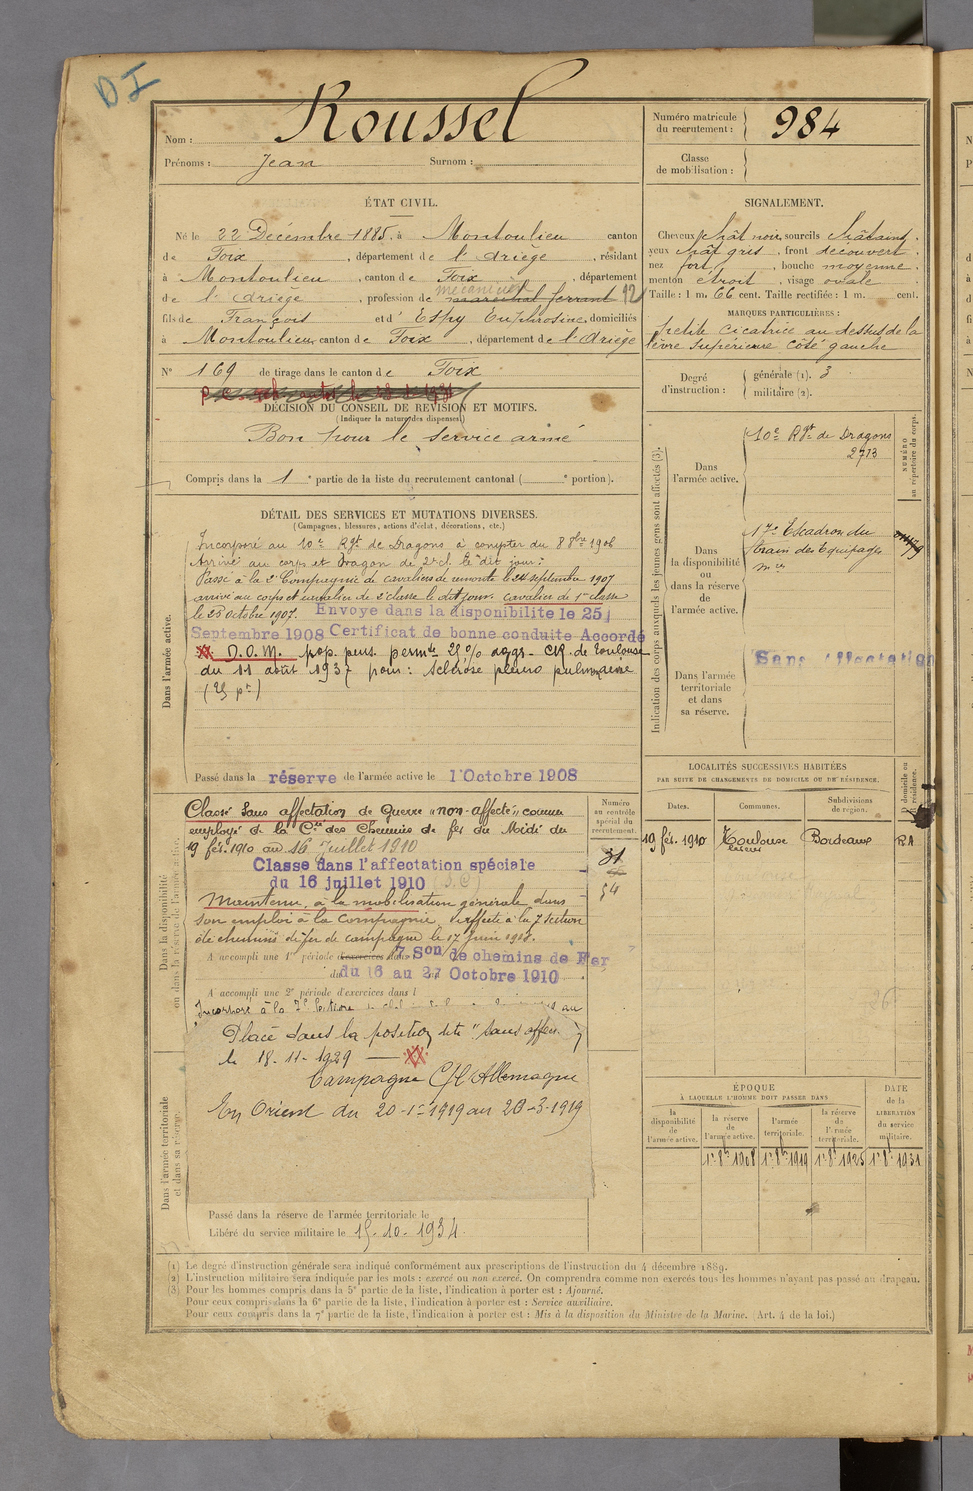 D.I
Nom : Roussel
Prénoms : Jean Surnom :
Numéro matricule du recrutement : 984
Classe de mobilisation :
ÉTAT CIVIL.
Né le 22 Décembre 1885, à Montoulieu canton
de Foix, département de l'Ariège, résidant
à Montoulieu, canton de Foix, département
mécanicien
de l'Ariège, profession de maréchal ferrant 12
fils de François et d'Espy Euphrosine, domiciliés
à Montoulieu, canton de Foix, département de l'Ariège
N° 169 de tirage dans le canton de Foix
DÉCISION DU CONSEIL DE RÉVISION ET MOTIFS.
(Indiquer la nature des dispenses.)
Bon pour le service armé
Compris dans la 1 e partie de la liste du recrutement cantonal ( e portion).
SIGNALEMENT.
Cheveux chât noir, sourcils châtains,
yeux chât gris, front découvert,
nez fort, bouche moyenne,
menton étroit, visage ovale
Taille : 1 m. 66 cent. Taille rectifiée : 1 m. cent.
MARQUES PARTICULIÈRES :
petite cicatrice au dessus de la
lèvre supérieure côté gauche
Degré d'instruction : générale (1). 3
militaire (2).
DÉTAIL DES SERVICES ET MUTATIONS DIVERSES.
(Campagnes, blessures, actions d'éclat, décorations, etc.)
Dans l'armée active.
Incorporé au 10e Rgt de Dragons à compter du 8 8bre 1906
Arrivé au corps et Dragon de 2e cl. le dit jour :
Passé à la 2e Compagnie de cavaliers de remonte le 24 septembre 1907
arrivé au corps et cavalier de 2e classe le dit jour. cavalier de 1re classe
le 25 octobre 1907. Envoye dans la disponibilite le 25
Septembre 1908 Certificat de bonne conduite Accordé
XX. D.O.M. prop. pens. permte 25 % aggr. CR. de Toulouse
du 11 août 1937 pour : sclérose pleuro pulmonaire
Passé dans la réserve de l'armée active le 1 Octobre 1908
Indication des corps auxquels les jeunes gens sont affectés (3).
NUMÉRO au répertoire du corps.
Dans l'armée active.
10e Rgt de Dragons
2713
Dans la disponibilité ou dans la réserve de l'armée active.
17e Escadron du
train des Equipages
mres
Dans l'armée territoriale et dans sa réserve.
Sans affectation
LOCALITÉS SUCCESSIVES HABITÉES
PAR SUITE DE CHANGEMENTS DE DOMICILE OU DE RÉSIDENCE.
Dates. Communes. Subdivisions de région. D domicile ou R résidence.
19 fév. 1910 Toulouse Bordeaux RA
Dans la disponibilité ou dans la réserve de l'armée active.
Numéro au contrôle spécial du recrutement.
31
54
Classé sans affectation de Guerre "non-affecté" comme
employé de la Cie des Chemins de fer du Midi du
19 fév. 1910 au 16 juillet 1910
Classe dans l'affectation spéciale
du 16 juillet 1910
Maintenu à la mobilisation générale dans
son emploi à la Compagnie. Affecté à la 7 section
de chemins de fer de campagne le 17 juin 1918.
A accompli une 1re période d'exercices dans 7 Son de chemins de Fer
du 16 au 27 Octobre 1910
A accompli une 2e période d'exercices dans l
Incorporé à la 7e Section
Placé dans la position dite "sans affon"
le 18-11-1929 — XX
Campagne C/l'Allemagne
En Orient du 20-1-1919 au 20-3-1919
Dans l'armée territoriale et dans sa réserve.
Passé dans la réserve de l'armée territoriale le
Libéré du service militaire le 15-10-1934.
ÉPOQUE
À LAQUELLE L'HOMME DOIT PASSER DANS
DATE de la LIBÉRATION du service militaire.
la disponibilité de l'armée active. la réserve de l'armée active. l'armée territoriale. la réserve de l'armée territoriale.
1r 8b 1908 1r 8b 1919 1r 8b 1925 1r 8b 1931
(1) Le degré d'instruction générale sera indiqué conformément aux prescriptions de l'instruction du 4 décembre 1889.
(2) L'instruction militaire sera indiquée par les mots : exercé ou non exercé. On comprendra comme non exercés tous les hommes n'ayant pas passé au drapeau.
(3) Pour les hommes compris dans la 5e partie de la liste, l'indication à porter est : Ajourné.
Pour ceux compris dans la 6e partie de la liste, l'indication à porter est : Service auxiliaire.
Pour ceux compris dans la 7e partie de la liste, l'indication à porter est : Mis à la disposition du Ministre de la Marine. (Art. 4 de la loi.)